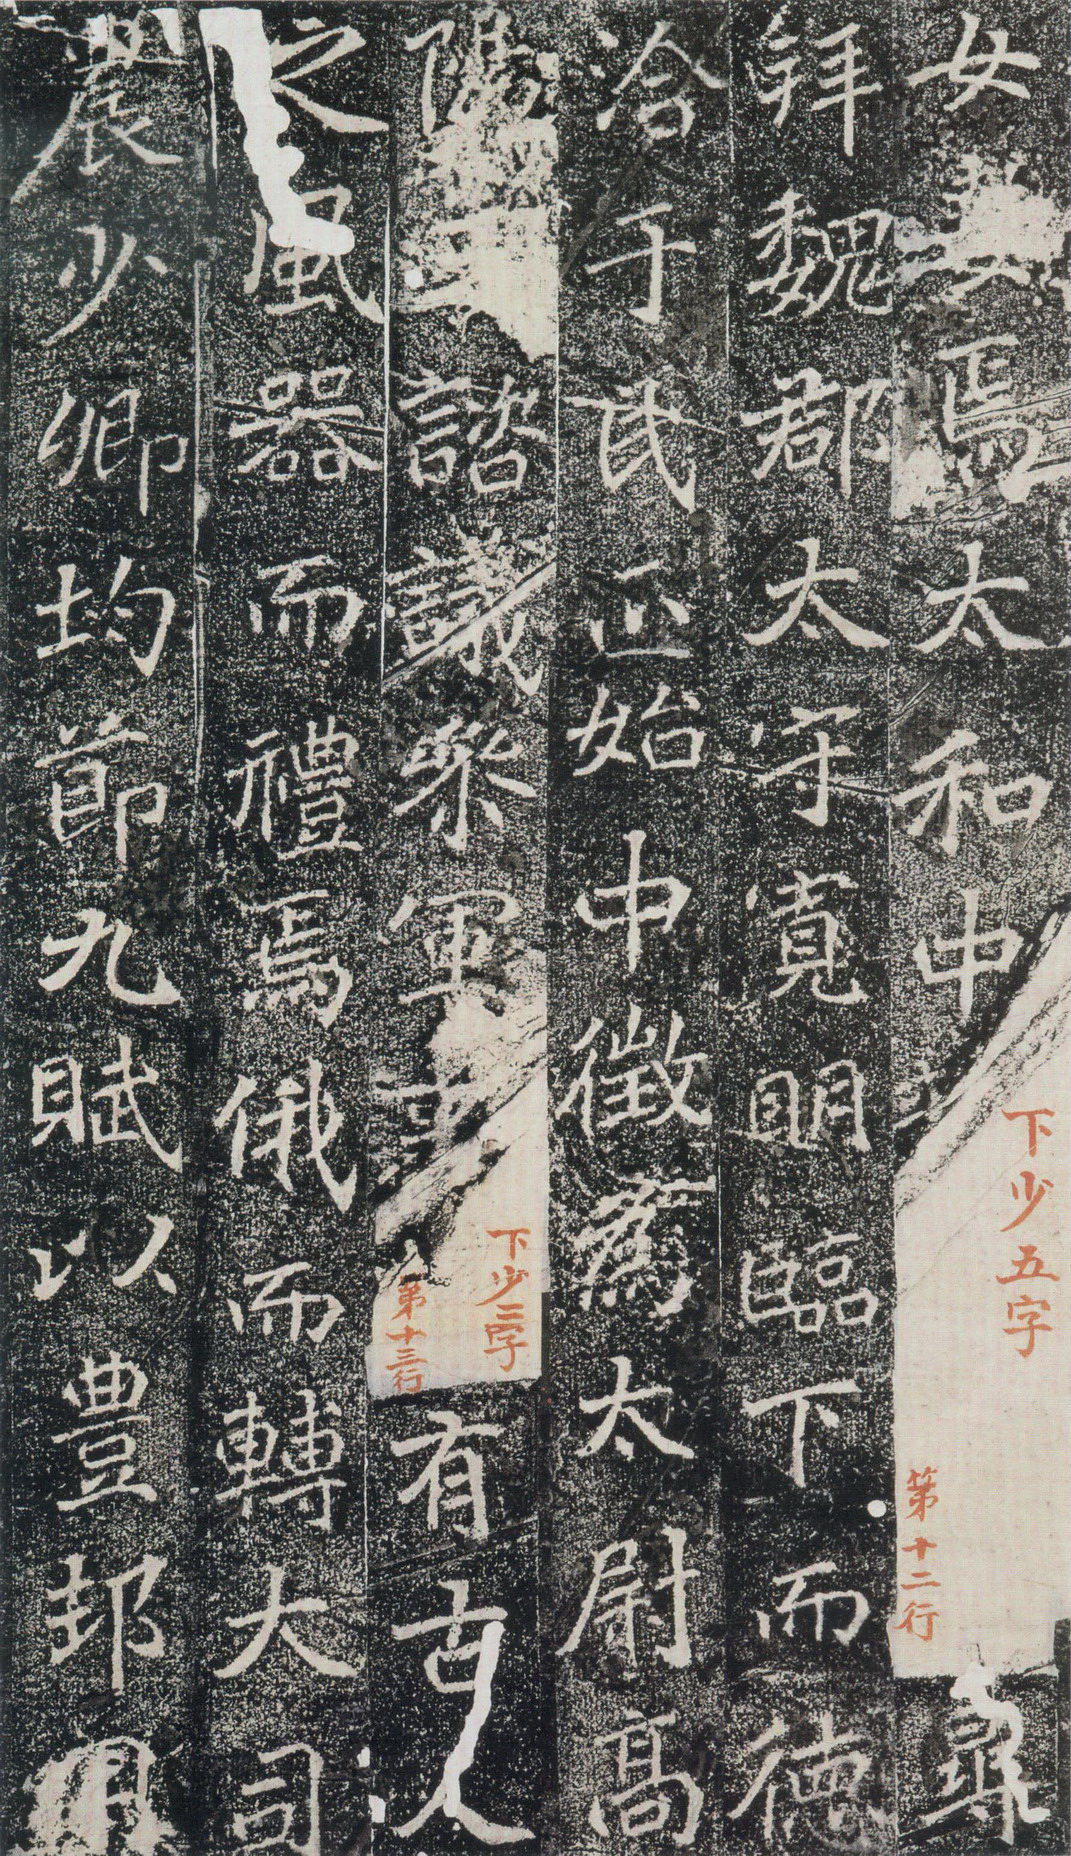 女焉太和中
下少五字
第十二行
尋
拜魏郡太守寬明臨下而德
洽于民正始中徵為太尉高
陽王諮議參軍事
下少二字
第十三行
有古人
之風器而禮焉俄而轉大司
農少卿均節九賦以豊邦用